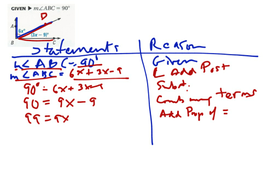 GIVEN ▸ m∠ABC = 90°
A
D
B
C
Statements
Reason
m∠ABC = 90°
Given
m∠ABC = 6x + 3x - 9
∠ Add Post
90° = 6x + 3x - 9
Subst.
90 = 9x - 9
Combining terms
99 = 9x
Add Prop of =